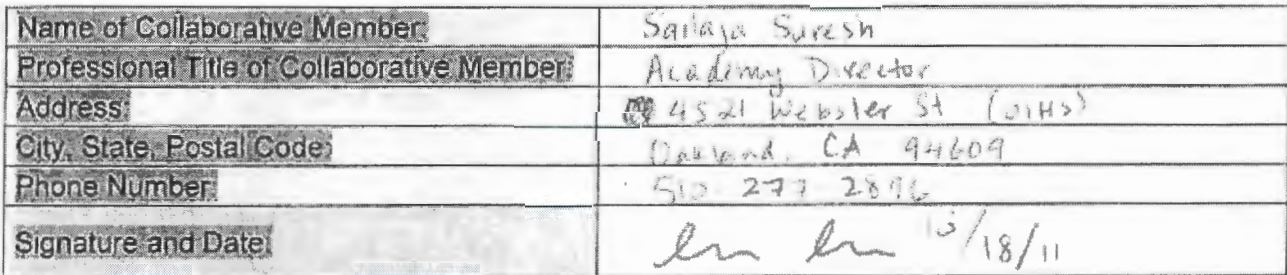 Name of Collaborative Member: Sailaja Suresh
Professional Title of Collaborative Member: Academy Director
Address: 4521 Webster St (OIHS)
City, State, Postal Code: Oakland, CA 94609
Phone Number: 510 277 2896
Signature and Date: 10/18/11